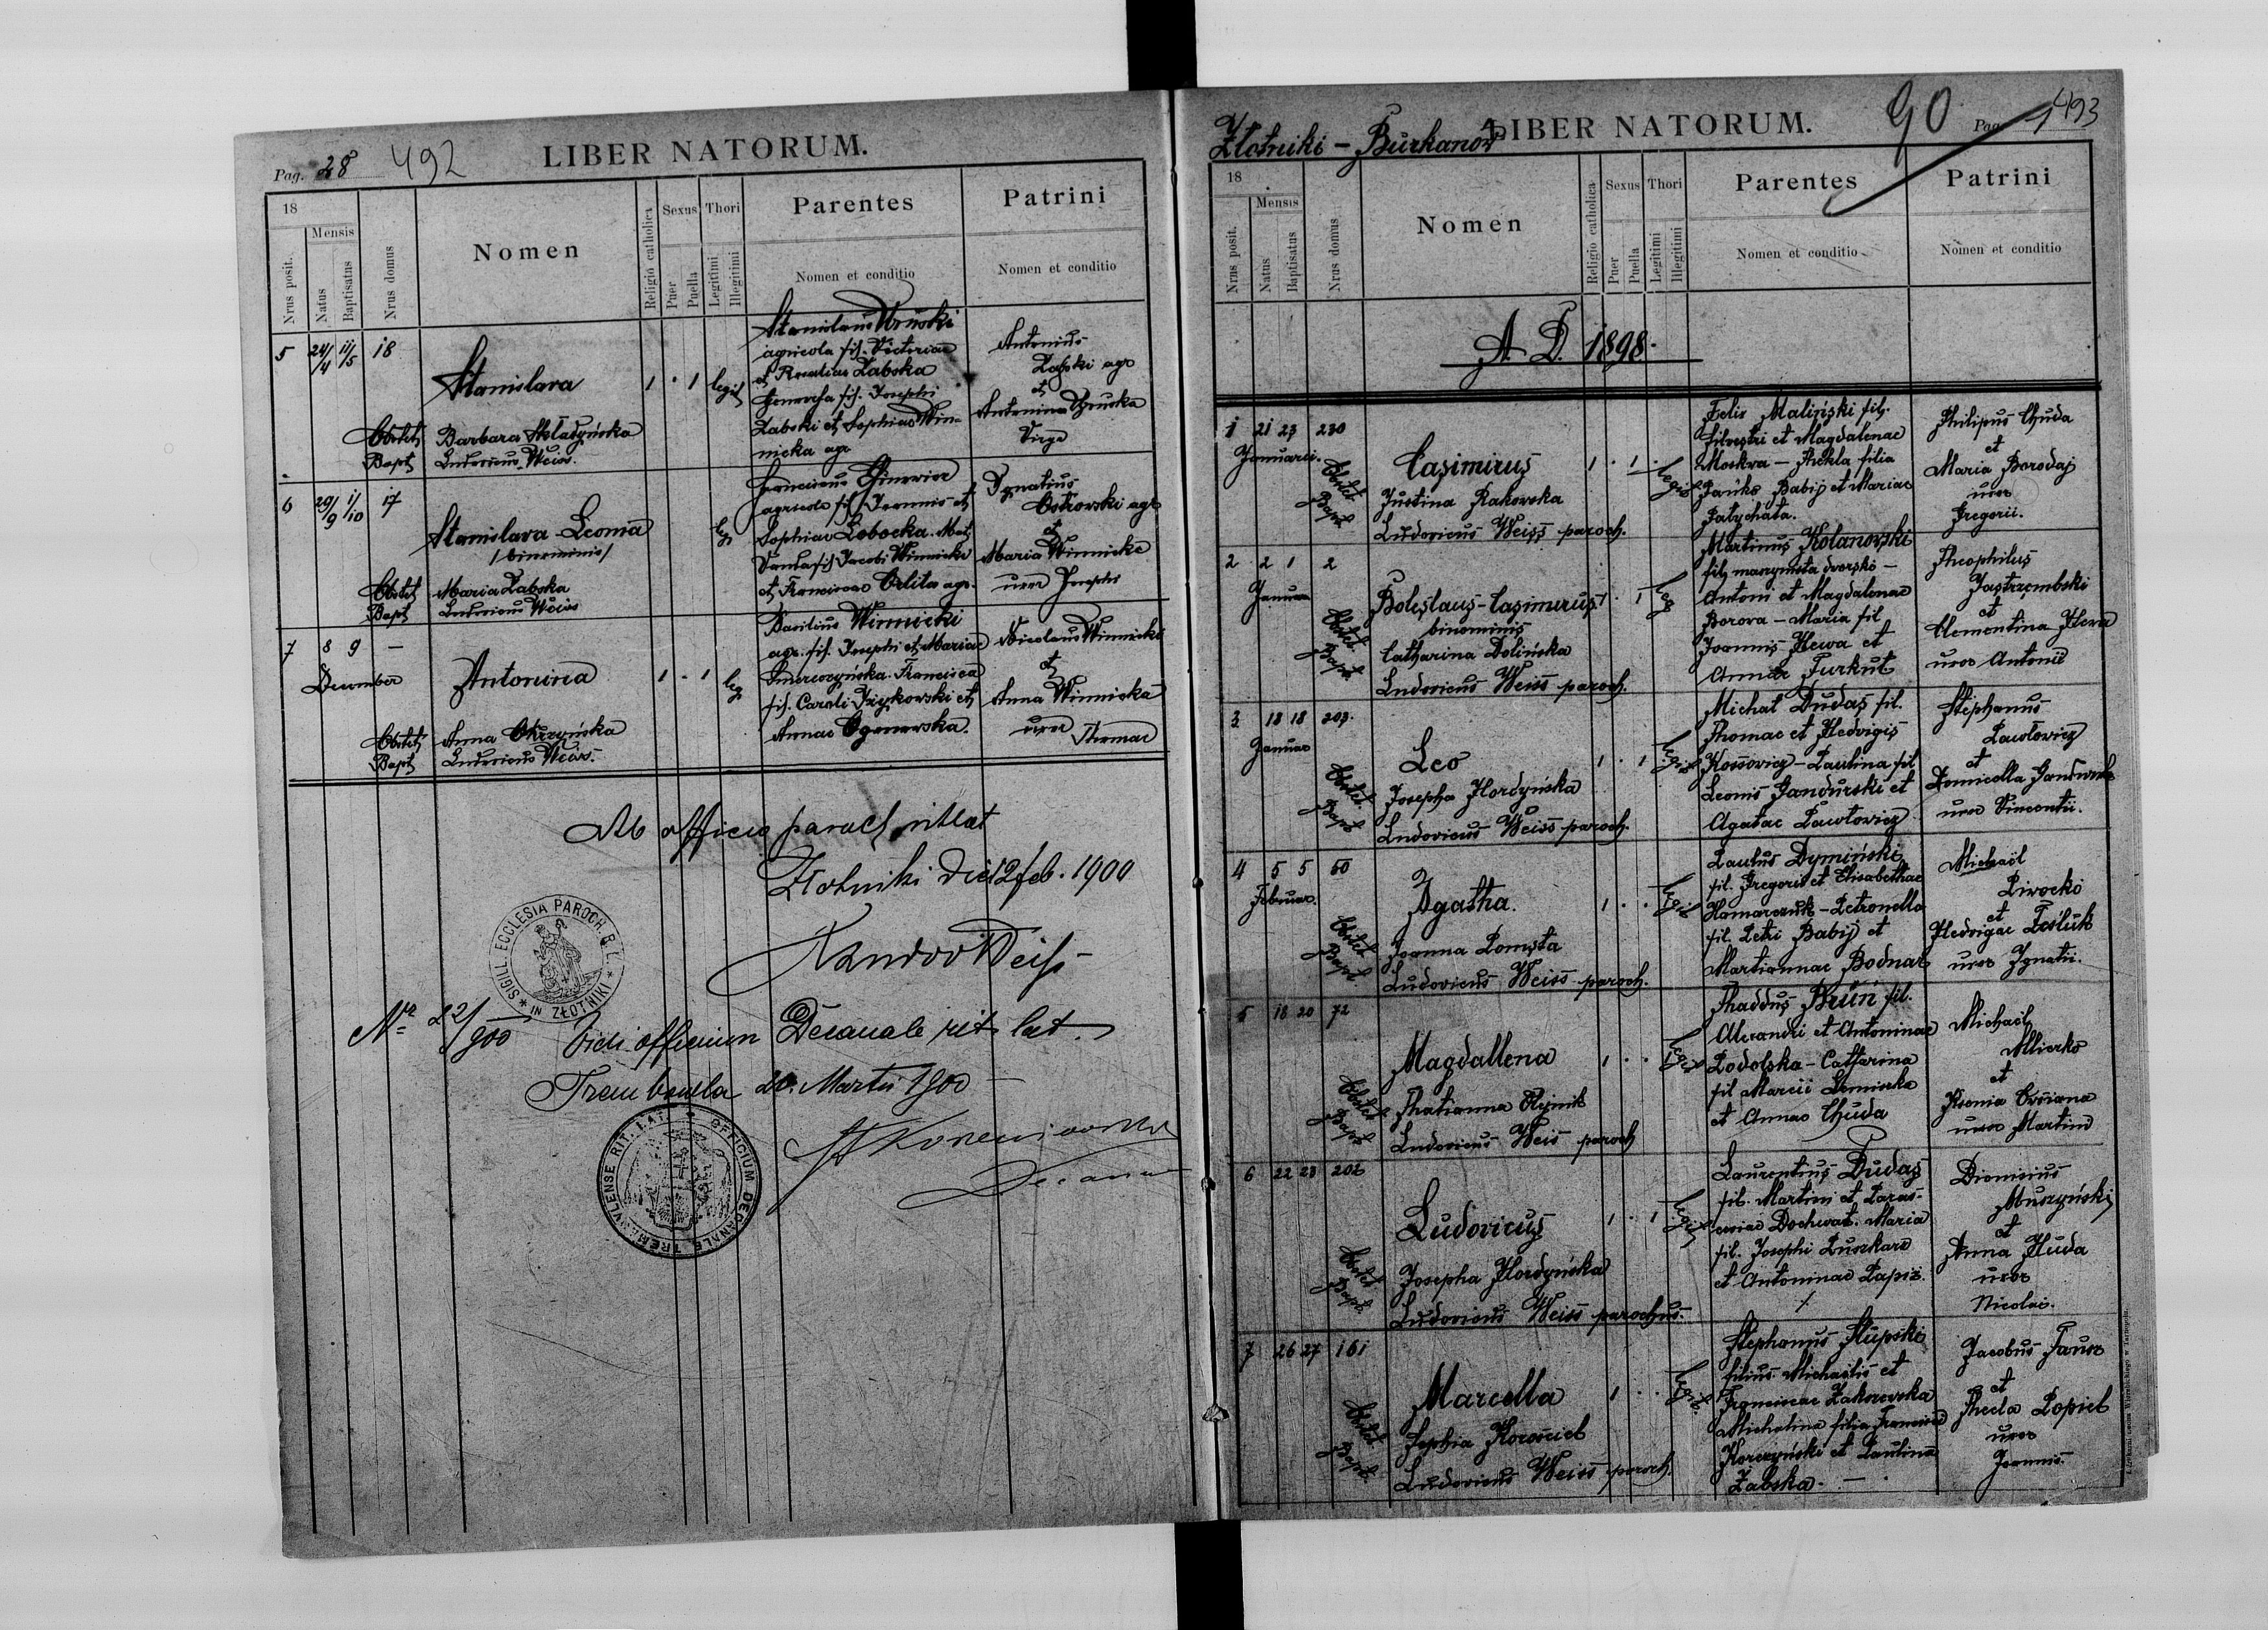 Pag. 28 492
LIBER NATORUM.
18
Mensis
Nrus posit.
Natus
Baptisatus
Nrus domus
Nomen
Religio catholica
Sexus
Puer
Puella
Thori
Legitimi
Illegitimi
Parentes
Nomen et conditio
Patrini
Nomen et conditio
5 24/4 11/5 18
Stanislava
1 · 1 legit
Obstet Barbara
Bapt Ludovicus Weiss.
Stanislaus
agricola fil.
et Rosaliae Żabska
Genovefa fil. Josephi
Żabski et Sophiae Win-
nicka agr
Antonius
Żabski agr
et
Antonina
Virgo
6 29/9 1/10 17
Stanislava Leonia
/binominis/
leg
Obstet Maria Żabska
Bapt Ludovicus Weiss
Franciscus
agricola fil Joannis et
Sophiae
fil Jacobi Winnicki
et Franciscae Orlita agr.
Ignatius
Ostrowski agr
et
Maria Winnicka
uxor Josephi
7 8 9 —
December
Antonina
1 - 1 leg
Obstet Anna
Bapt Ludovicus Weiss.
Basilius Winnicki
agr. fil. Josephi et Maria
Francisca
fil. Caroli et
Annae
Nicolaus Winnicki
et
Anna Winnicka
uxor
Thomae
Ab officio paroch rit lat
Złotniki die 12 feb. 1900
Weiss
SIGILL ECCLESIA PAROCH. R. L. IN ZŁOTNIKI
Nro 22/900 Vidi officium Decanale rit lat.
Trembowla 20. Martii 1900
OFFICIUM DECANALE TREMBOVLENSE RIT. LAT.
Decanus
Złotniki – Burkanów
LIBER NATORUM.
90
Pag. 1 493
18
Mensis
Nrus posit.
Natus
Baptisatus
Nrus domus
Nomen
Religio catholica
Sexus
Puer
Puella
Thori
Legitimi
Illegitimi
Parentes
Nomen et conditio
Patrini
Nomen et conditio
A. D. 1898.
1 21 23 230
Januarii.
Casimirus
1 · 1 · legit
Obstet Justina Rakowska
Bapt Ludovicus Weiss paroch.
Felix Maliński fil.
Silvestri et Magdalenae
Moskwa – Thekla filia
Jańko Babij et Mariae
Patychata.
Philipus Chuda
et
Maria Borodaj
uxor
Gregorii.
2 2 1 2
Januar
Boleslaus-Casimirus
binominis
· 1 leg
Obstet Catharina Dolińska
Bapt Ludovicus Weiss paroch.
Martinus Kolanowski
fil. maszynista dworski –
Antoni et Magdalenae
Borova – Maria fil
Joannis Hewa et
Annae Furkut
Theophilus
Jastrzembski
et
Clementina Hewa
uxor Antonii
3 18 18 203.
Januar
Leo
1 · 1 legit
Obstet Josepha Hordyńska
Bapt Ludovicus Weiss paroch.
Michał Dudas fil.
Thomae et Hedvigis
Kossowicz – Paulina fil
Leonis Gandurski et
Agatae Pawłowicz
Stephanus
Pawłowicz
et
Domicella
uxor Vincentii.
4 5 5 50
Februar.
Agatha.
1 · · legit
Obstet Joanna Pompta
Bapt Ludovicus Weiss paroch.
Paulus Dymiński
fil. Gregorii et Elisabethae
Hamarczuk – Petronella
fil. Petri Babij et
Martiannae Bodnar
Michaël
Pirocki
et
Hedvigae
uxor Ignatii.
5 18 20 72
Magdallena
1 · · legit
Obstet Thatianna Olijnik
Bapt Ludovicus Weiss paroch
Thaddus Brün fil.
Alexandri et Antoninae
Podolska – Catharina
fil Marcii
et Annae Chuda
Michaël
et
Ksenia
uxor Martini
6 22 23 202
Ludovicus
1 · 1 legit
Obstet Josepha Hordyńska
Bapt. Ludovicus Weiss parochus.
Laurentius Dudas
fil. Martini et Paras-
ceviae Dochwat. Maria
fil. Josephi Puszkarz
et Antoninae Papiż.
Dionisius
Muszyński
et
Anna Huda
uxor
Nicolai.
7 26 27 161
Marcella
1 · · legit.
Obstet Sophia
Bapt. Ludovicus Weiss paroch.
Stephanus Słupski
filius Michaelis et
Franciscae Zakrzewska
Michalina filia Francisci
Korczyński et Paulinae
Żabska. –
Jacobus Faur
et
Thecla Popiel
uxor
Joannis